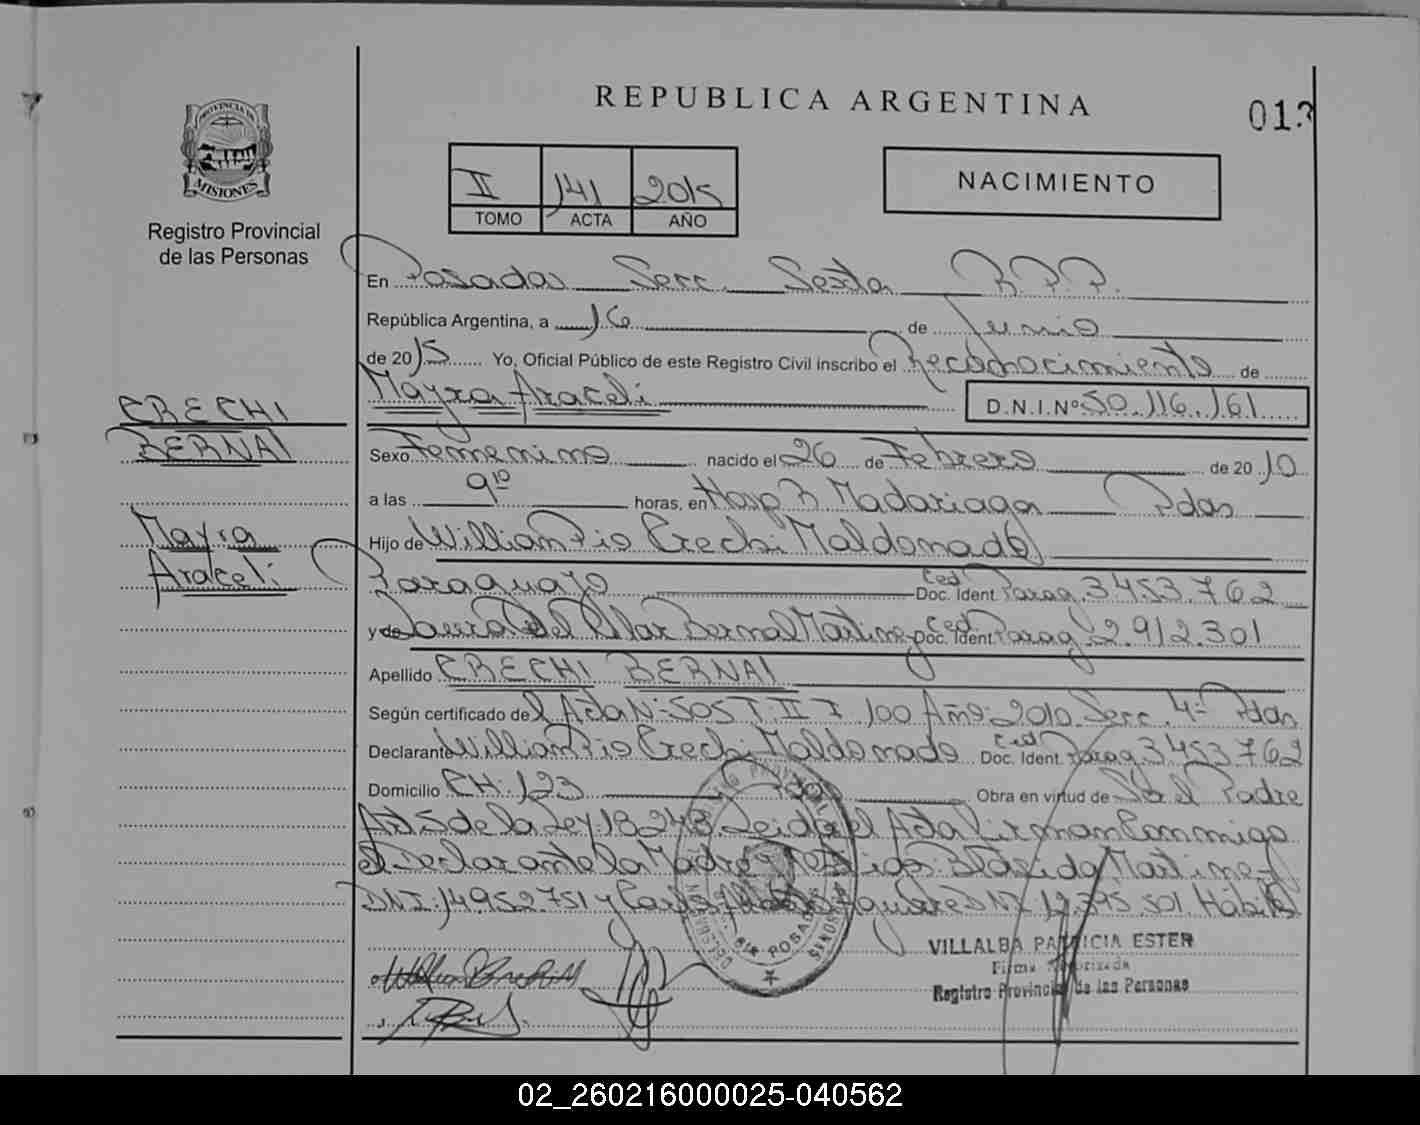 REPUBLICA ARGENTINA
013
PROVINCIA DE
MISIONES
Registro Provincial
de las Personas
II 141 2015
TOMO ACTA AÑO
NACIMIENTO
En Posadas Secc. Sexta R.P.P.
República Argentina, a 16 de Junio
de 2015 Yo, Oficial Público de este Registro Civil inscribo el Reconocimiento de
Mayra Araceli
D.N.I.Nº 50.116.161
CRECHI
BERNAL
Mayra
Araceli
Sexo Femenino nacido el 26 de Febrero de 2010
a las 9 10 horas, en Hosp R Madariaga Pdas
Hijo de Willian Pio Crechi Maldonado
Paraguayo Ced Doc. Ident. Parag. 3.453.762
y de Laura Del Pilar Bernal Martinez Ced Doc. Ident. Parag 2.912.301
Apellido CRECHI BERNAL
Según certificado del Acta Nº 505 T. II F 100 Año: 2010 Secc. 4º Pdas
Declarante Willian Pio Crechi Maldonado Ced Doc. Ident. Parag 3.453.762
Domicilio CH: 123 Obra en virtud de Ser el Padre
Art 5 de la Ley: 18.248. Leida el Acta Firman Conmigo
el Declarante la Madre y Testigos: Martinez
DNI: 14.952.751 y Aguirre DNI 12.395.501. Hábiles
VILLALBA PATRICIA ESTER
Firma Autorizada
Registro Provincial de las Personas
02_260216000025-040562